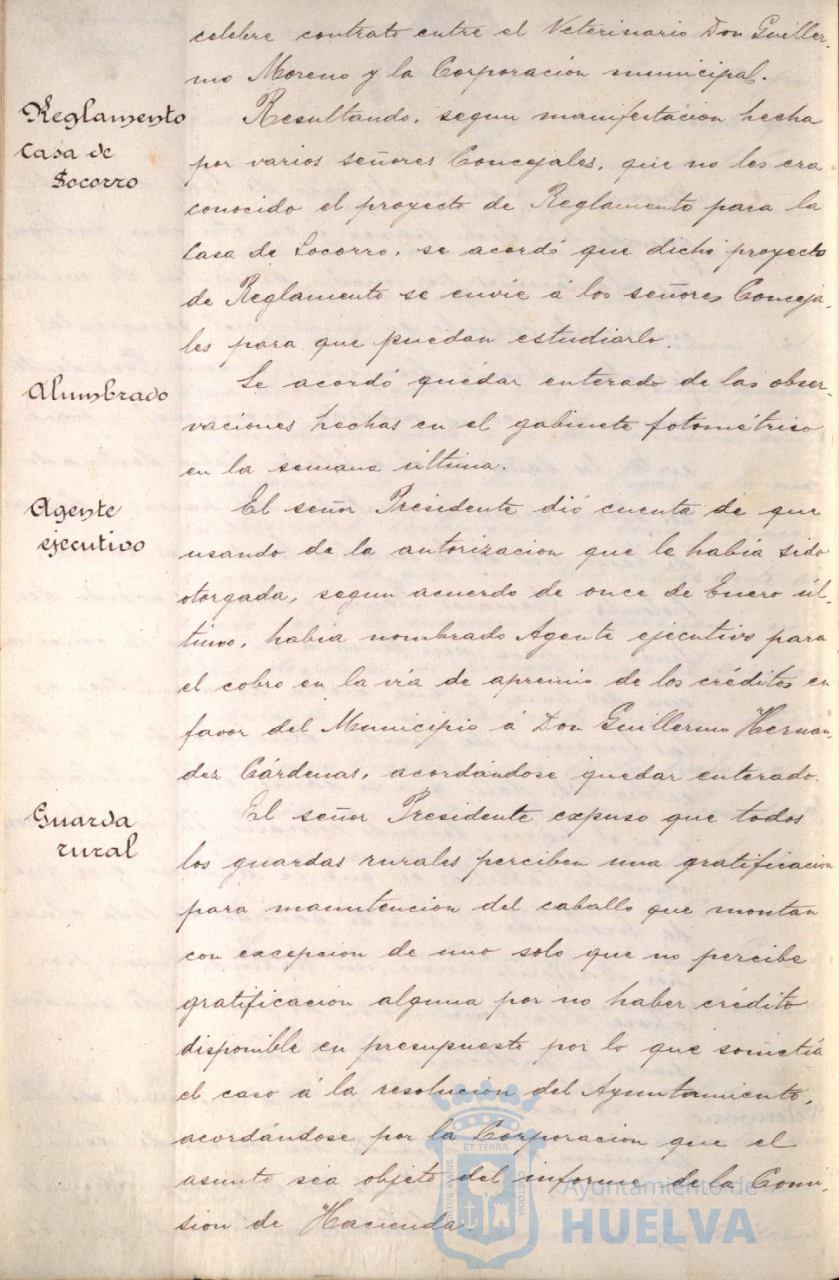 celebre contrato entre el Veterinario Don Guiller-
mo Moreno y la Corporacion municipal.
Reglamento
Casa de
Socorro
Resultando, segun manifestacion hecha
por varios señores Concejales, que no les era
conocido el proyecto de Reglamento para la
Casa de Socorro, se acordó que dicho proyecto
de Reglamento se envíe á los señores Conceja-
les para que puedan estudiarlo.
Alumbrado
Se acordó quedar enterado de las obser-
vaciones hechas en el gabinete fotométrico
en la semana última.
Agente
ejecutivo
El señor Presidente dió cuenta de que
usando de la autorizacion que le había sido
otorgada, segun acuerdo de once de Enero úl-
timo, habia nombrado Agente ejecutivo para
el cobro en la vía de apremio de los créditos en
favor del Municipio á Don Guillermo Hernan-
dez Cárdenas, acordándose quedar enterado.
Guarda
rural
El señor Presidente expuso que todos
los guardas rurales perciben una gratificacion
para manutencion del caballo que montan
con excepcion de uno solo que no percibe
gratificacion alguna por no haber crédito
disponible en presupuesto por lo que sometía
el caso á la resolucion del Ayuntamiento,
acordándose por la Corporacion que el
asunto sea objeto del informe de la Comi-
sion de Hacienda.
ET TERRA
PORTUS MARIS
CUSTODIA
Ayuntamiento de
HUELVA